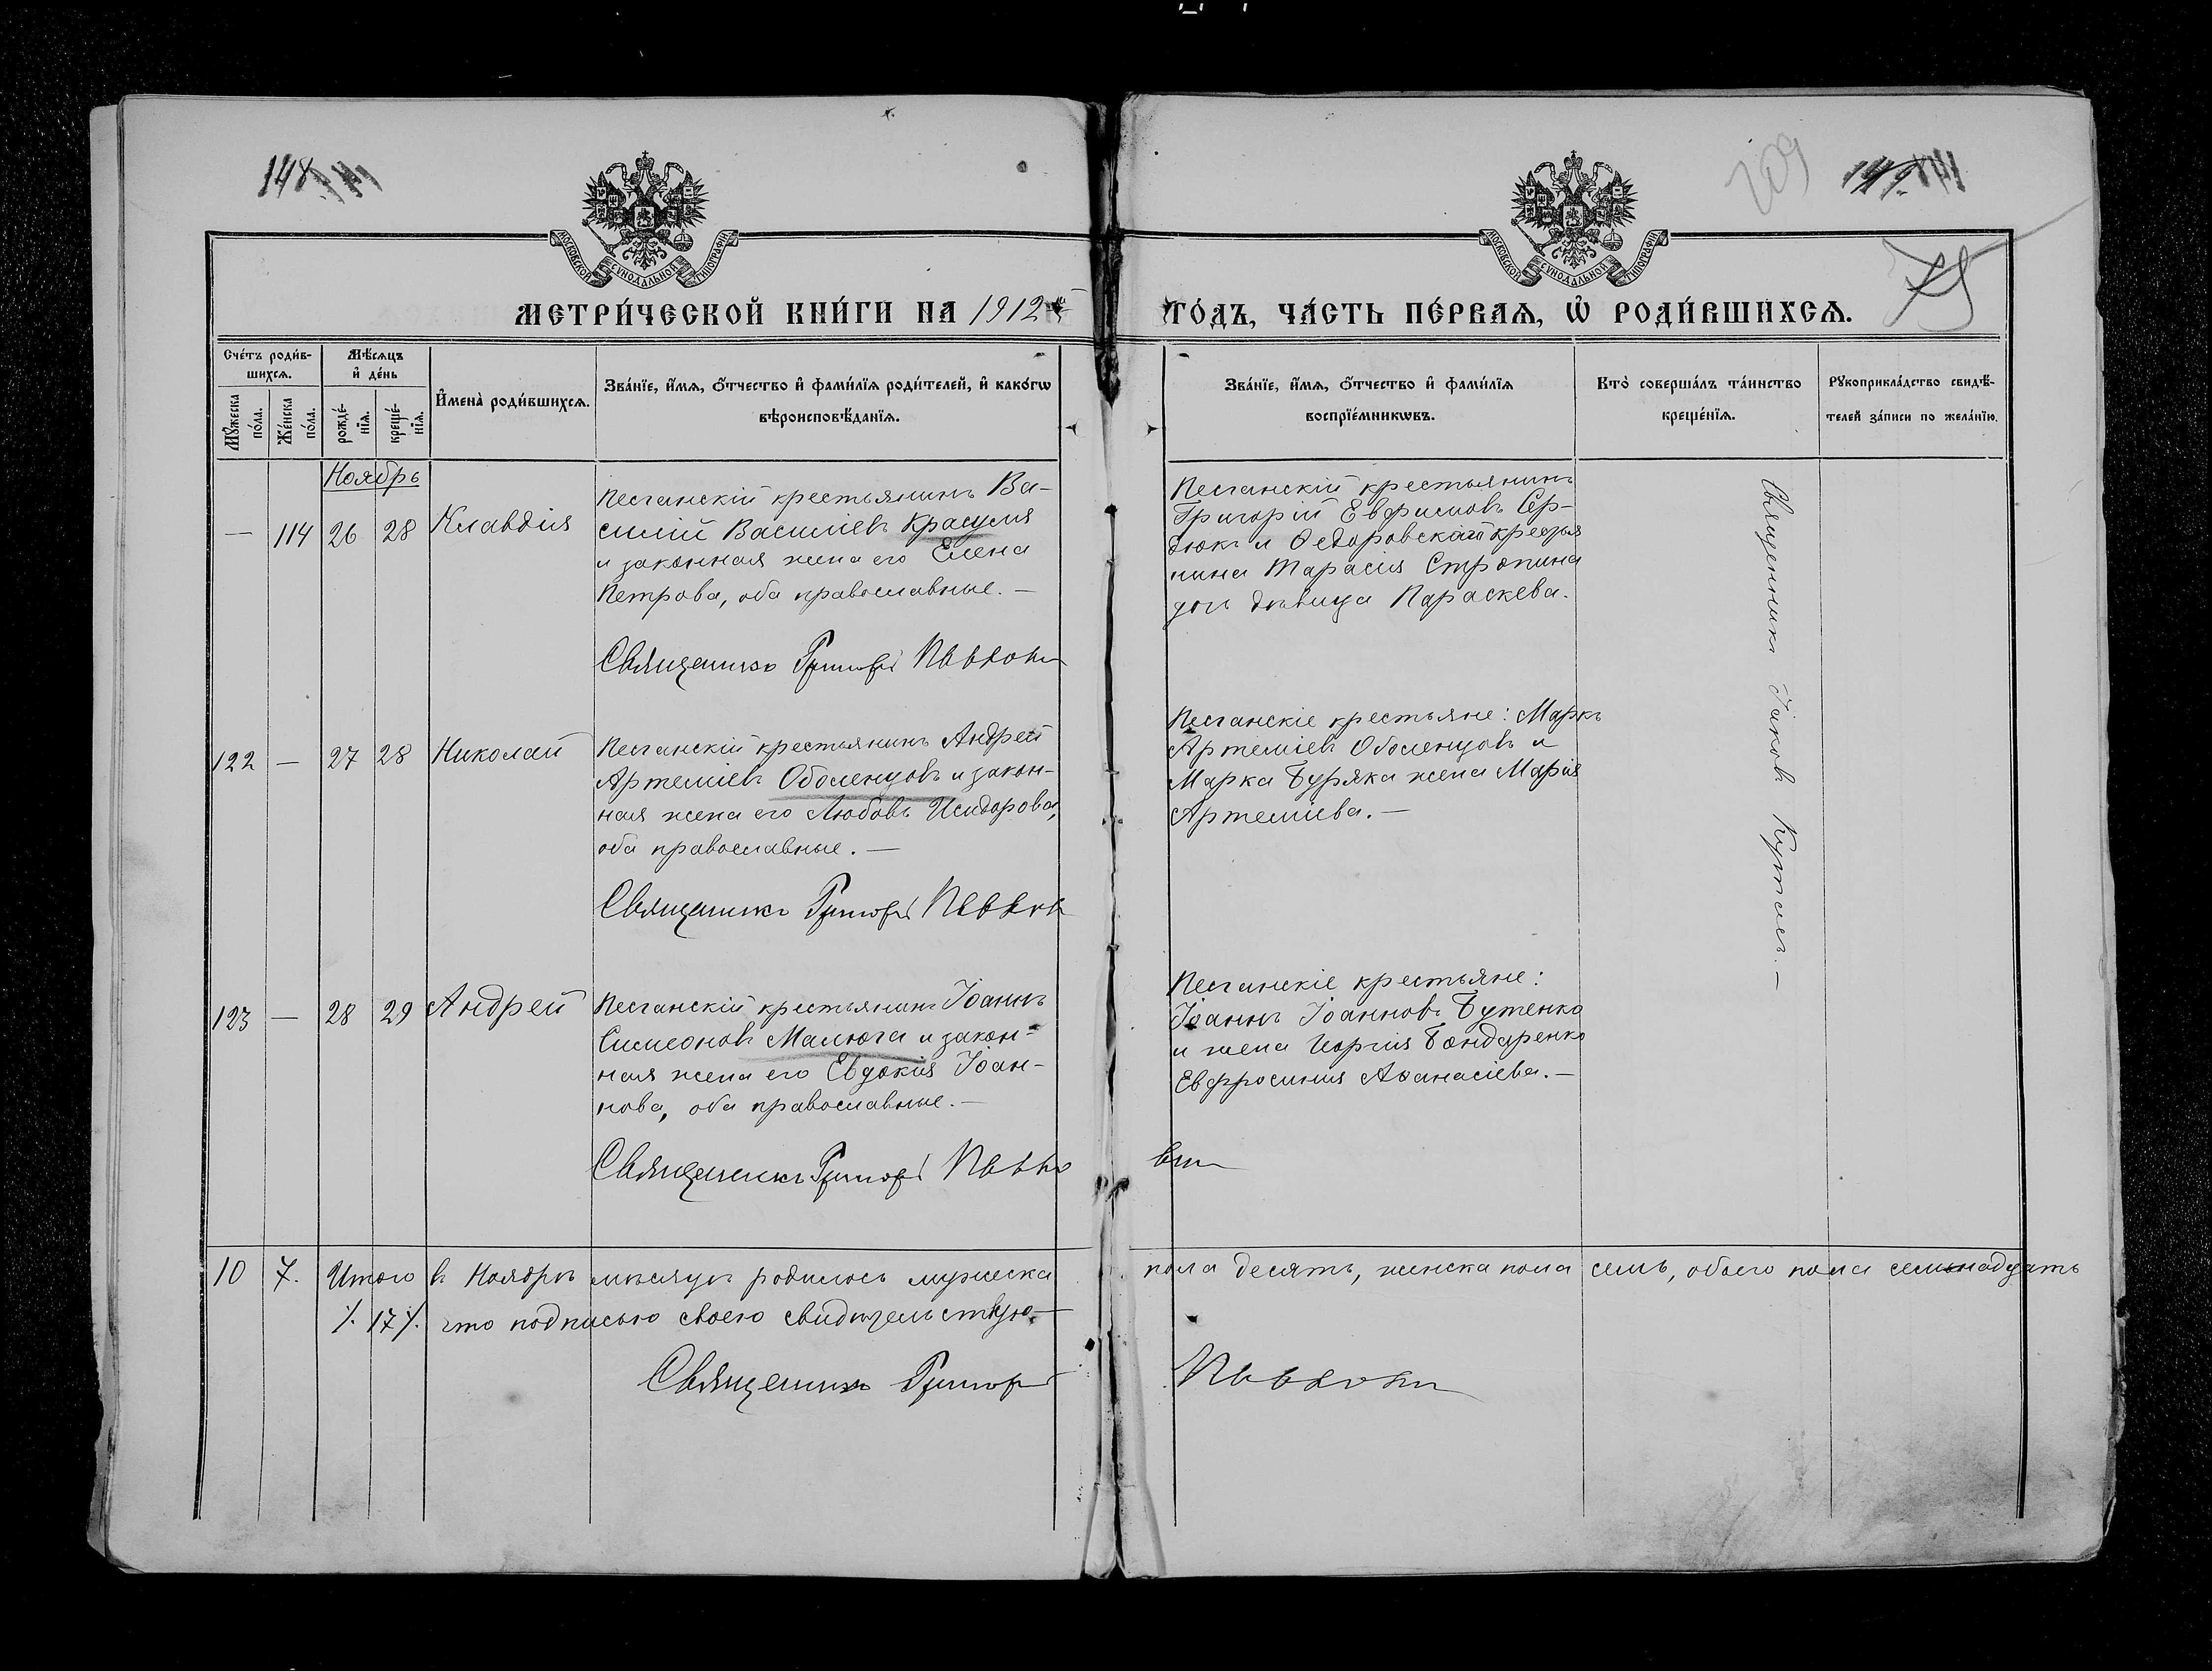 148.
109
МОСКОВСКОЙ СѴНОДАЛЬНОЙ ТИПОГРАФІИ
МОСКОВСКОЙ СѴНОДАЛЬНОЙ ТИПОГРАФІИ
75
МЕТРИ́ЧЕСКОЙ КНИ́ГИ НА 1912й
ГО́ДЪ, ЧА́СТЬ ПЕ́РВАѦ, Ѡ҆ РОДИ́ВШИХСѦ.
Сче́тъ роди́в-
шихсѧ.
Мꙋ́жеска по́ла.
Же́нска по́ла.
Мѣ́сѧцъ
и҆ де́нь
рожде́-
нїѧ.
креще́-
нїѧ.
И҆мена̀ роди́вшихсѧ.
Зва́нїе, и҆́мѧ, ѻ҆́тчество и҆ фами́лїѧ роди́телей, и҆ како́гѡ
вѣроисповѣ́данїѧ.
Зва́нїе, и҆́мѧ, ѻ҆́тчество и҆ фами́лїѧ
воспрїе́мникѡвъ.
Кто̀ соверша́лъ та́инство
креще́нїѧ.
Рꙋкоприкла́дство свидѣ́-
телей за́писи по жела́нїю.
Ноябрь
— 114 26 28 Клавдія
Песчанскій крестьянинъ Ва-
силій Василіевъ Красуля
и законная жена его Елена
Петрова, оба православные. —
Священникъ Григорій
Песчанскій крестьянинъ
Григорій Евфимовъ Сер-
дюкъ и Ѳедоровскаго крестья
нина Тарасія Стропина
дочь дѣвица Параскева.
Священникъ Іаковъ
122 — 27 28 Николай
Песчанскій крестьянинъ Андрей
Артеміевъ Оболенцовъ и закон-
ная жена его Любовь Исидорова,
оба православные. —
Священникъ Григорій
Песчанскіе крестьяне: Маркъ
Артеміевъ Оболенцовъ и
Марка Буряка жена Марія
Артеміева. —
123 — 28 29 Андрей
Песчанскій крестьянинъ Іоаннъ
Симеоновъ Малюга и закон-
ная жена его Евдокія Іоан-
нова, оба православные. —
Священникъ Григорій
Песчанскіе крестьяне:
Іоаннъ Іоанновъ Бутенко
и жена Бондаренко
Евфросинія Аѳанасіева. —
10 7. Итого въ Ноябрѣ мѣсяцѣ родилось мужеска пола десять, женска пола семь, обоего пола семнадцать
⁒ 17 ⁒ что подписью своею свидѣтельствую. —
Священникъ Григорій